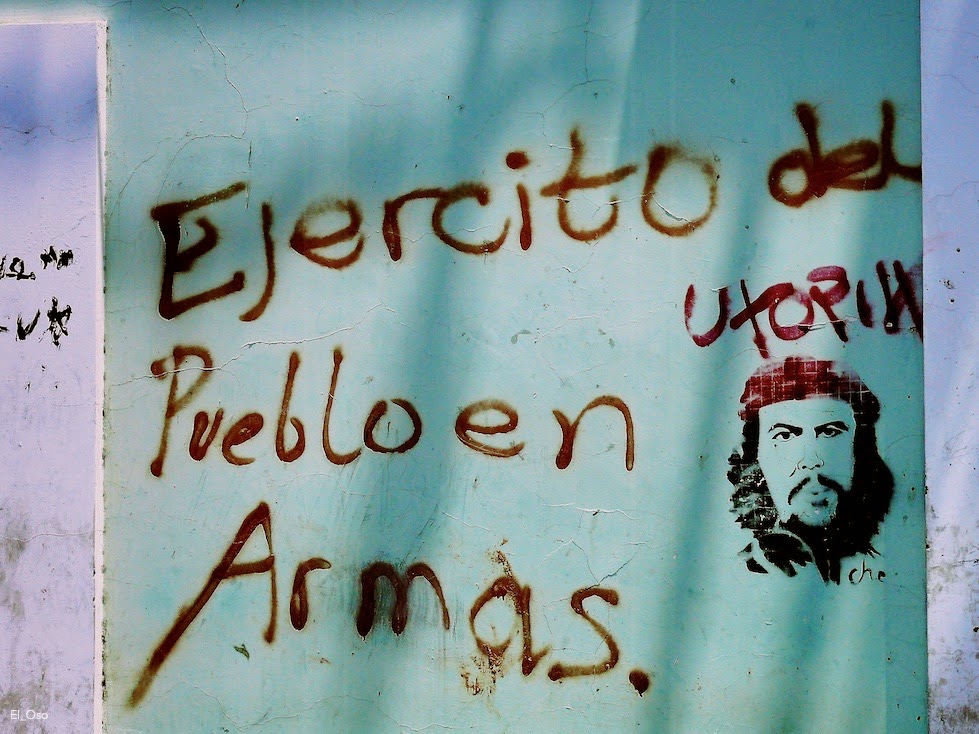 Ejercito del
UTOPIA
Pueblo en
Armas.
che
El_Oso